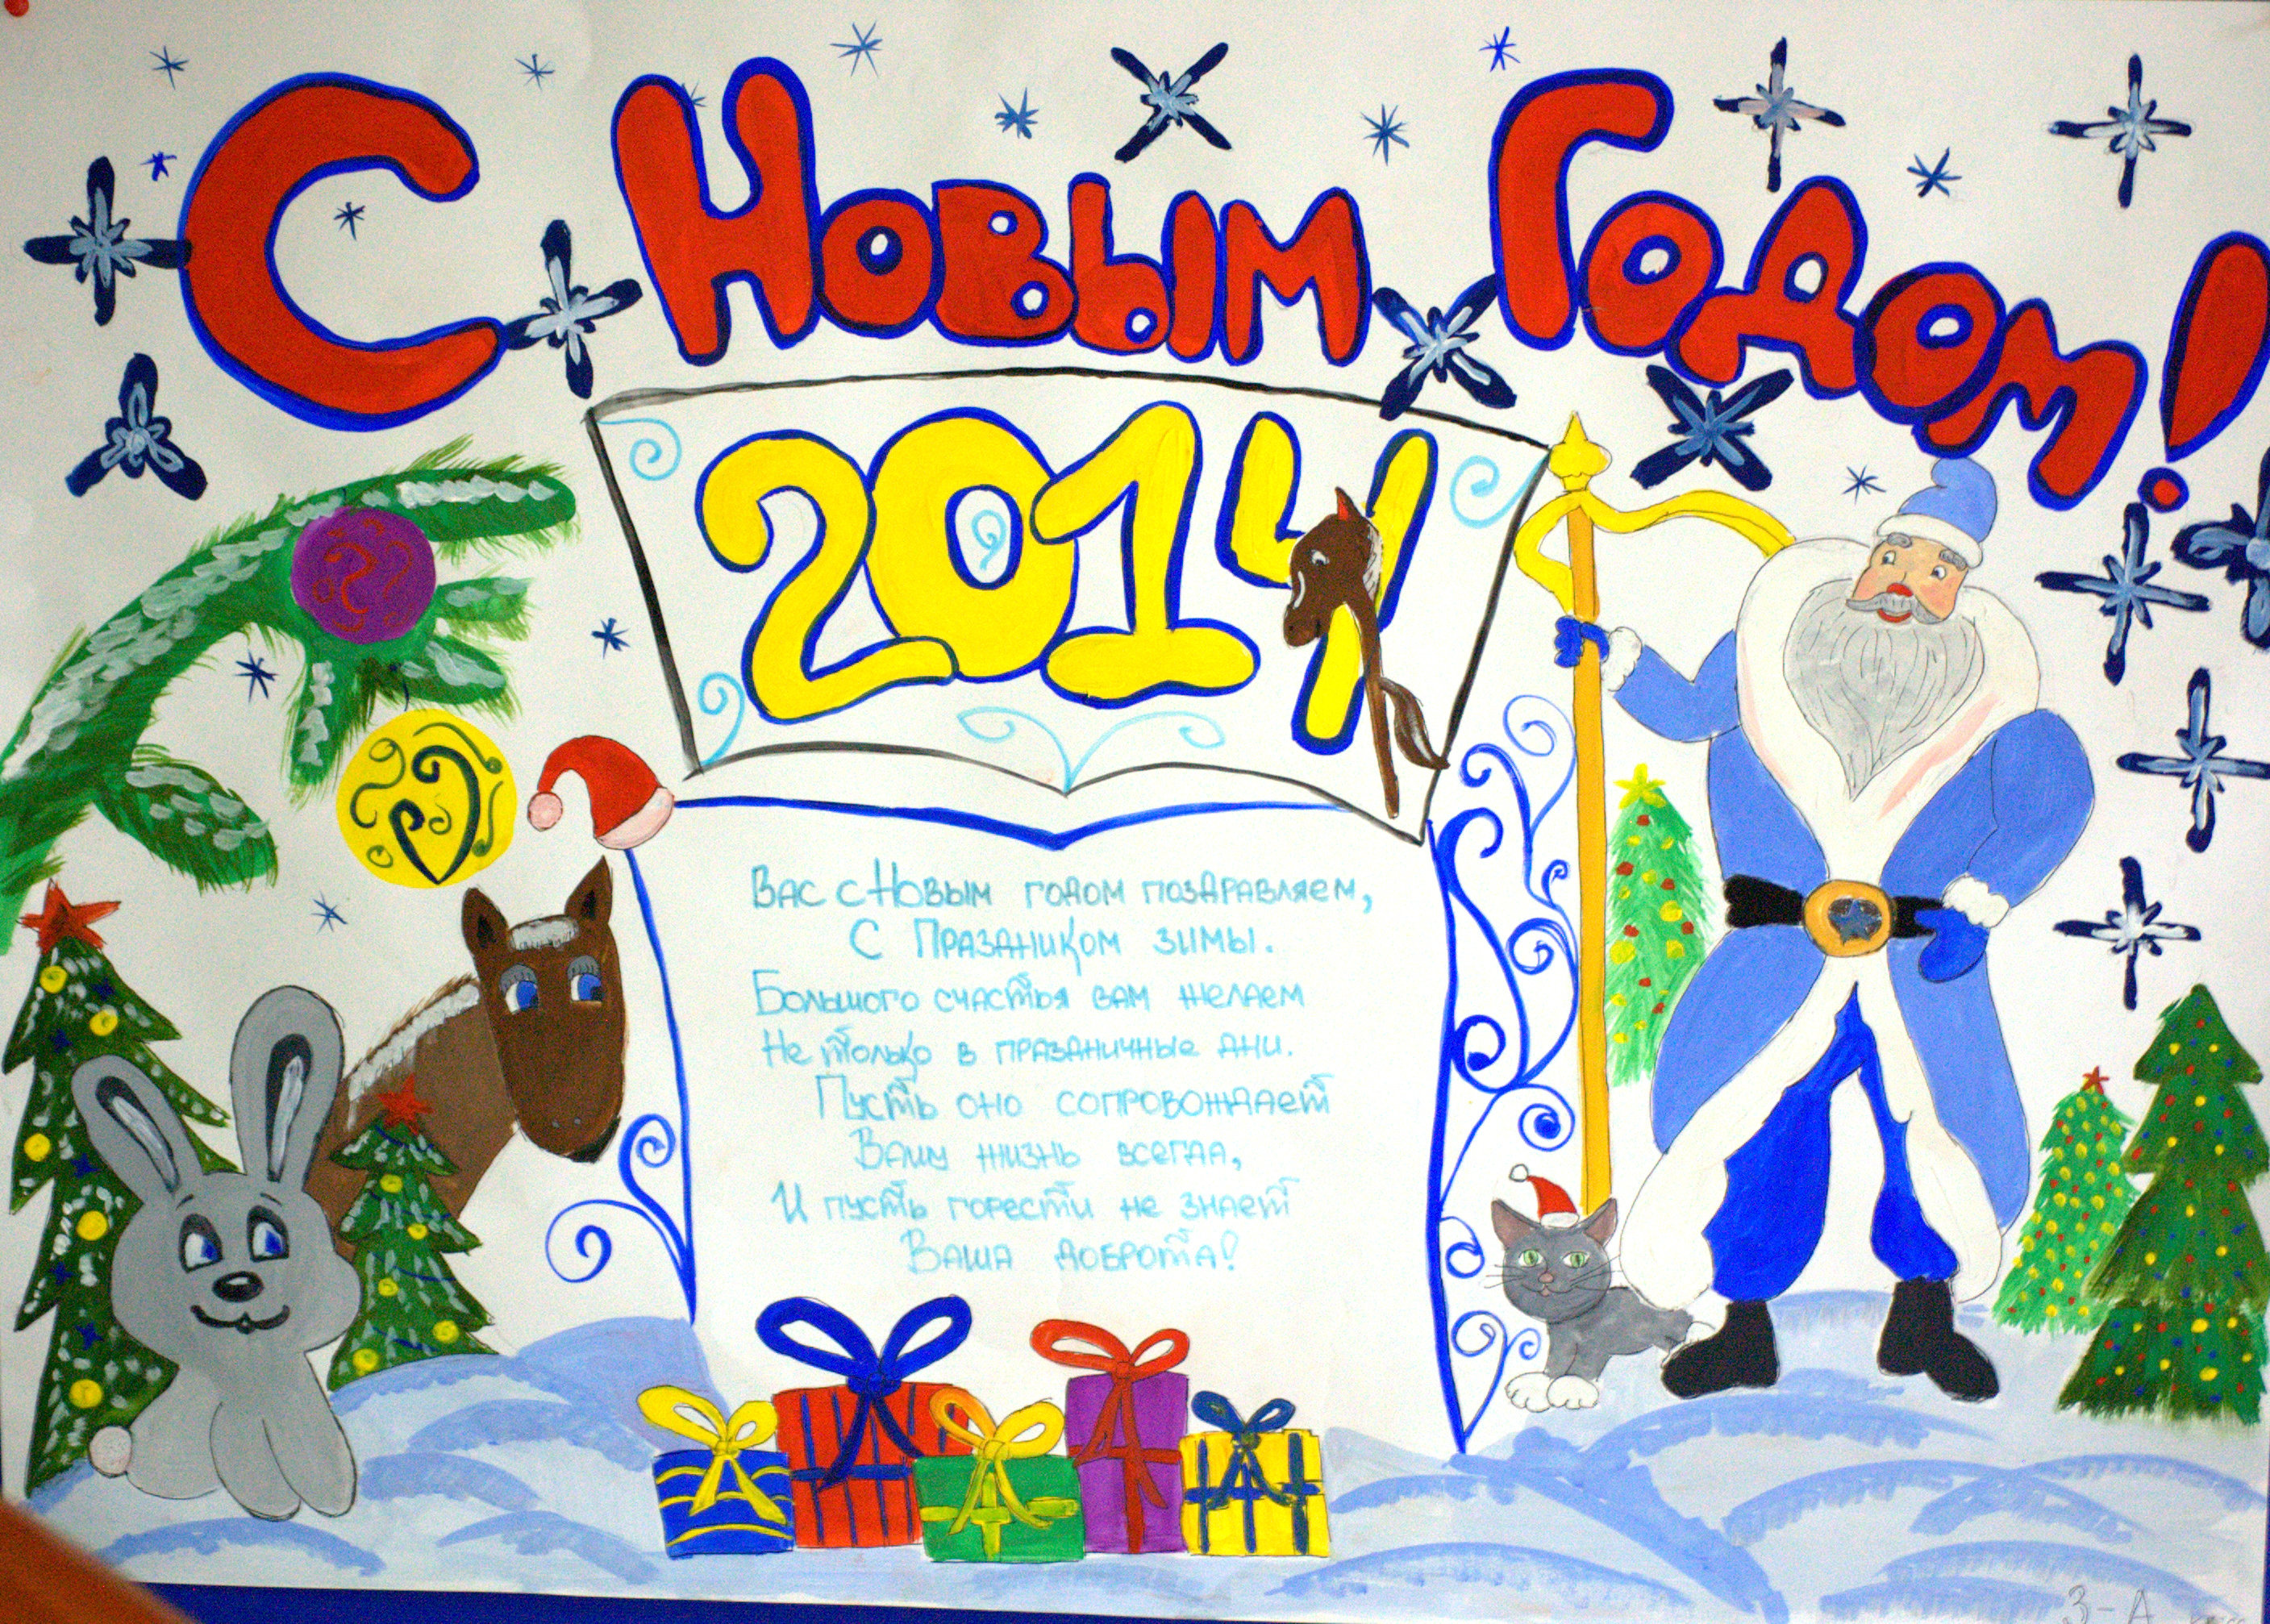 С Новым Годом!
2014
Вас с Новым годом поздравляем,
С Праздником зимы.
Большого счастья вам желаем
Не только в праздничные дни.
Пусть оно сопровождает
Вашу жизнь всегда,
И пусть горести не знает
Ваша доброта!
3-А